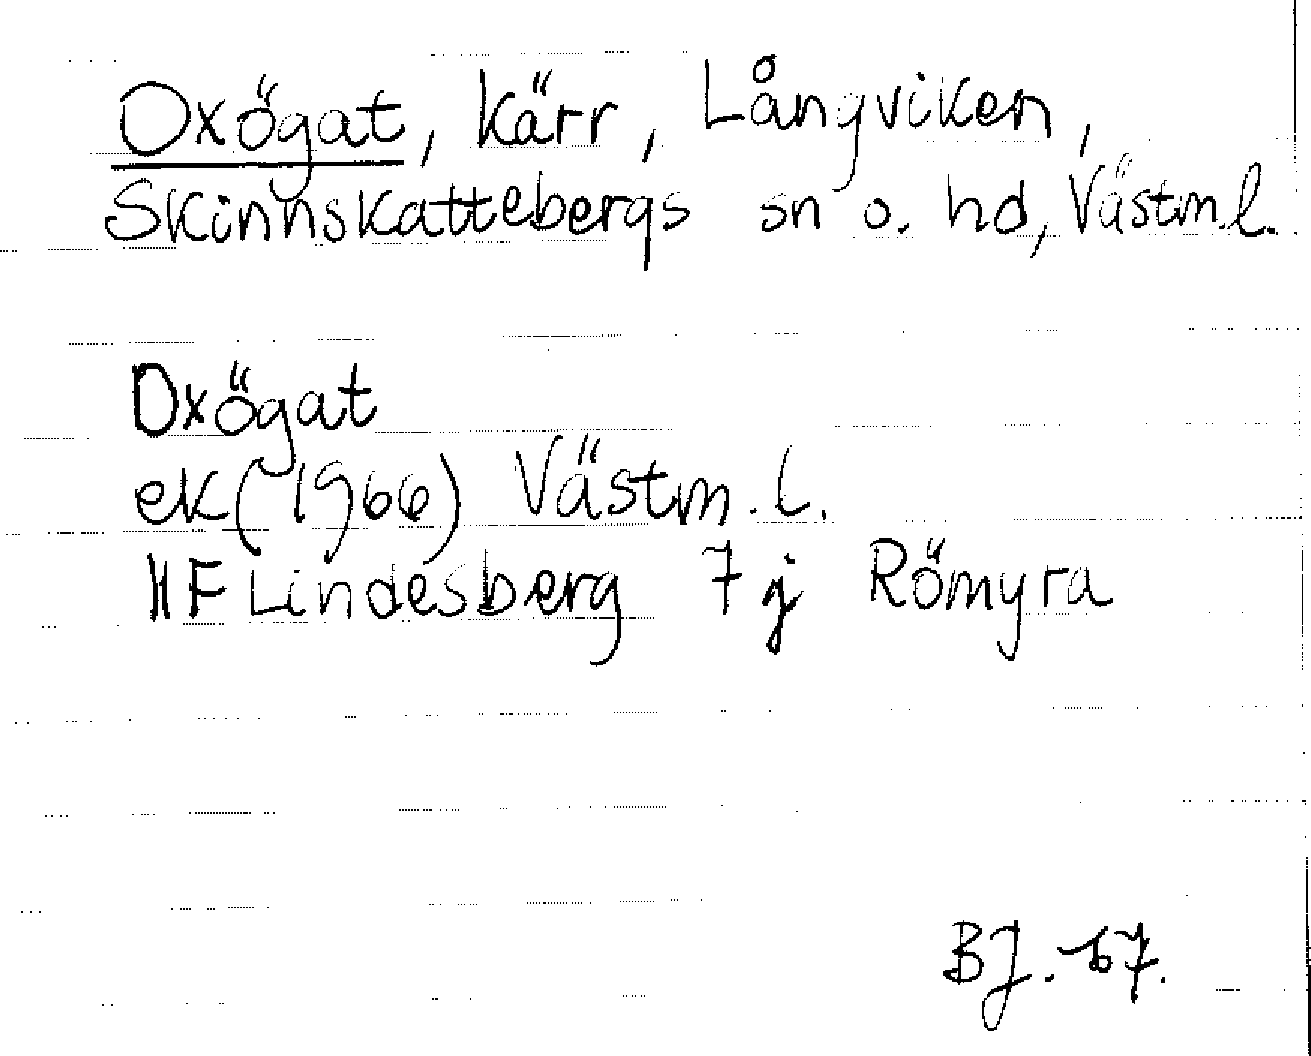 Oxögat, kärr, Långviken,
Skinnskattebergs sn o. hd, Västm.l.
Oxögat
ek (1966) Västm.l.
11F Lindesberg 7j Römyra
BJ. 67.